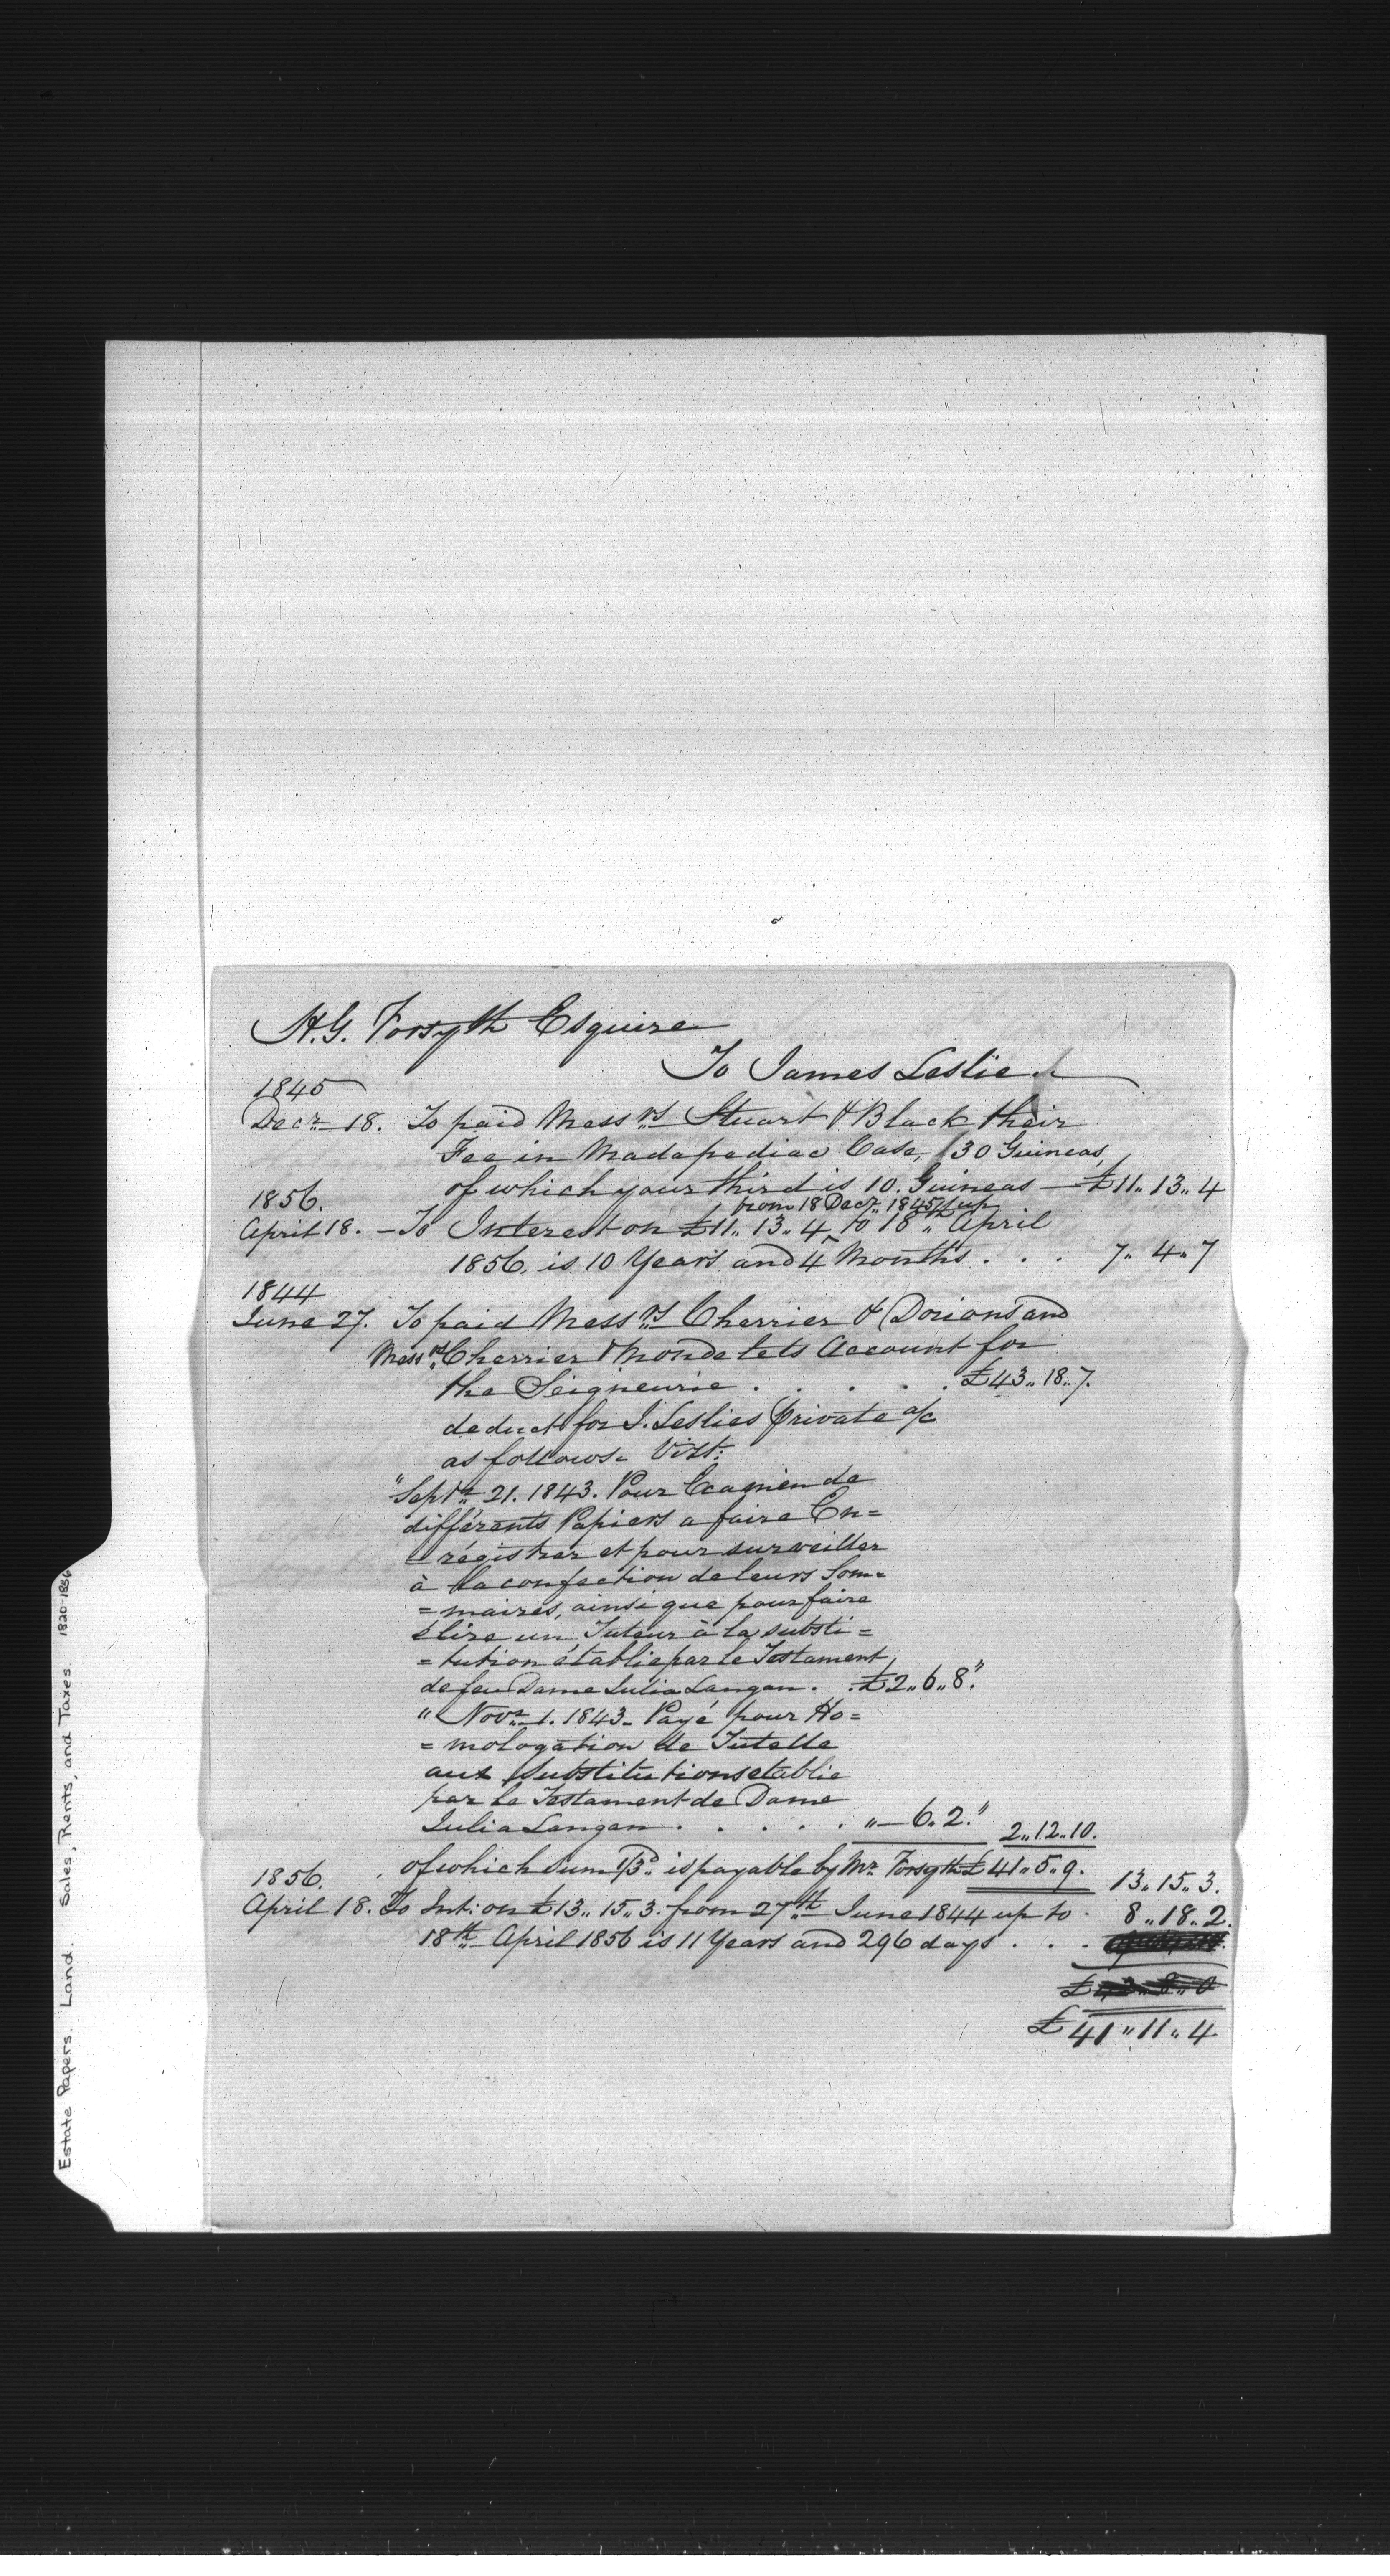 H.G. Forsyth Esquire
To James Leslie
1845
Decr. 18. To paid Messrs. Stuart & Black their
Fee in Madapediac Case, (30 Guineas,
of which your third is 10. Guineas — £11,, 13,, 4
1856.
from 18 Decr. 1845 up
April 18. — To Interest on £11,, 13,, 4 ^ to 18th April
1856, is 10 Years and 4 Months . . . 7,, 4,, 7
1844
June 27. To paid Messrs. Cherrier & Dorions and
Messrs. Cherrier & Mondelets Account for
the Seigneurie . . . . . £43,, 18,, 7.
deduct for J. Leslies private a/c
as follows. Vizt:
"Septr. 21. 1843. Pour Examen de
différents Papiers a faire En=
=régistrer et pour surveiller
à la confection de leurs Som=
=maires, ainsi que pour faire
élire un Tuteur à la substi=
=tution établie par le Testament
de feu Dame Julia Langan. . £2,, 6,, 8."
" Novr. 1. 1843. Payé pour Ho=
=mologation de Tutelle
aux Substitutions etablie
par le Testament de Dame
Julia Langan . . . . . " — 6,, 2." 2,, 12,, 10.
of which sum 1/3d. is payable by Mr. Forsyth £41,, 5,, 9. 13,, 15,, 3.
1856.
April 18. To Int: on £13,, 15,, 3. from 27th June 1844 up to . 8,, 18,, 2.
18th April 1856 is 11 Years and 296 days . . .
£
£41,, 11,, 4
Estate Papers. Land. Sales, Rents, and Taxes. 1820-1856